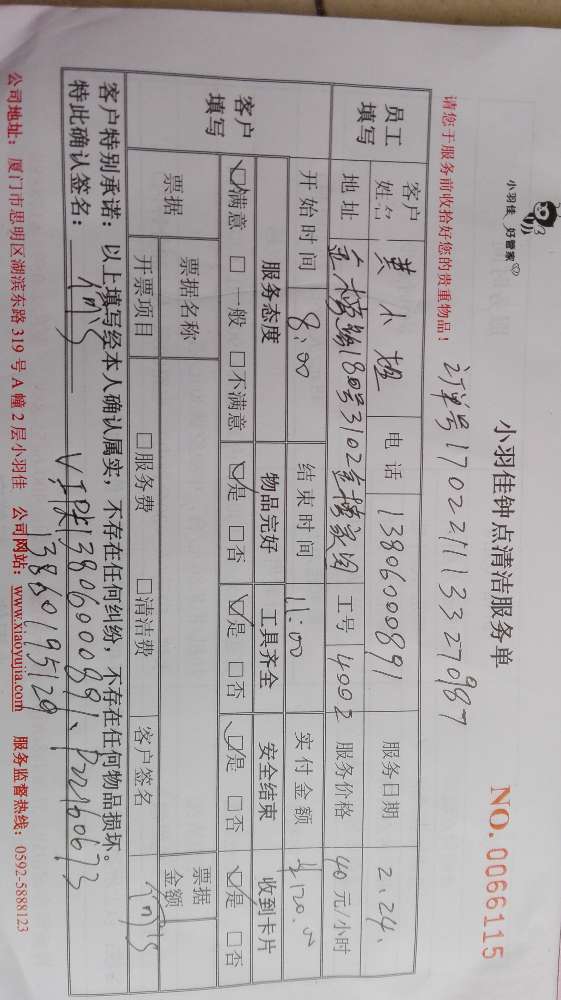 小羽佳 好管家
小羽佳钟点清洁服务单
NO. 0066115
请您于服务前收拾好您的贵重物品！
订单号1702211133270987
员工填写
客户姓名 黄小姐 电话 13806000891 服务日期 2.24.
地址 金榜路180号3102金榜家园 工号 4002 服务价格 40元/小时
开始时间 8:00 结束时间 11:00 实付金额
客户填写
服务态度 物品完好 工具齐全 安全结束 收到卡片
☑满意 □一般 □不满意 ☑是 □否 ☑是 □否 ☑是 □否 ☑是 □否
票据 票据名称 票据金额
开票项目 □服务费 □清洁费 客户签名
客户特别承诺：以上填写经本人确认属实，不存在任何纠纷，不存在任何物品损坏。
特此确认签名：
VIP卡13806000891、P22160673
13860195129
公司地址：厦门市思明区湖滨东路319号A幢2层小羽佳 公司网站：www.xiaoyujia.com 服务监督热线：0592-5888123